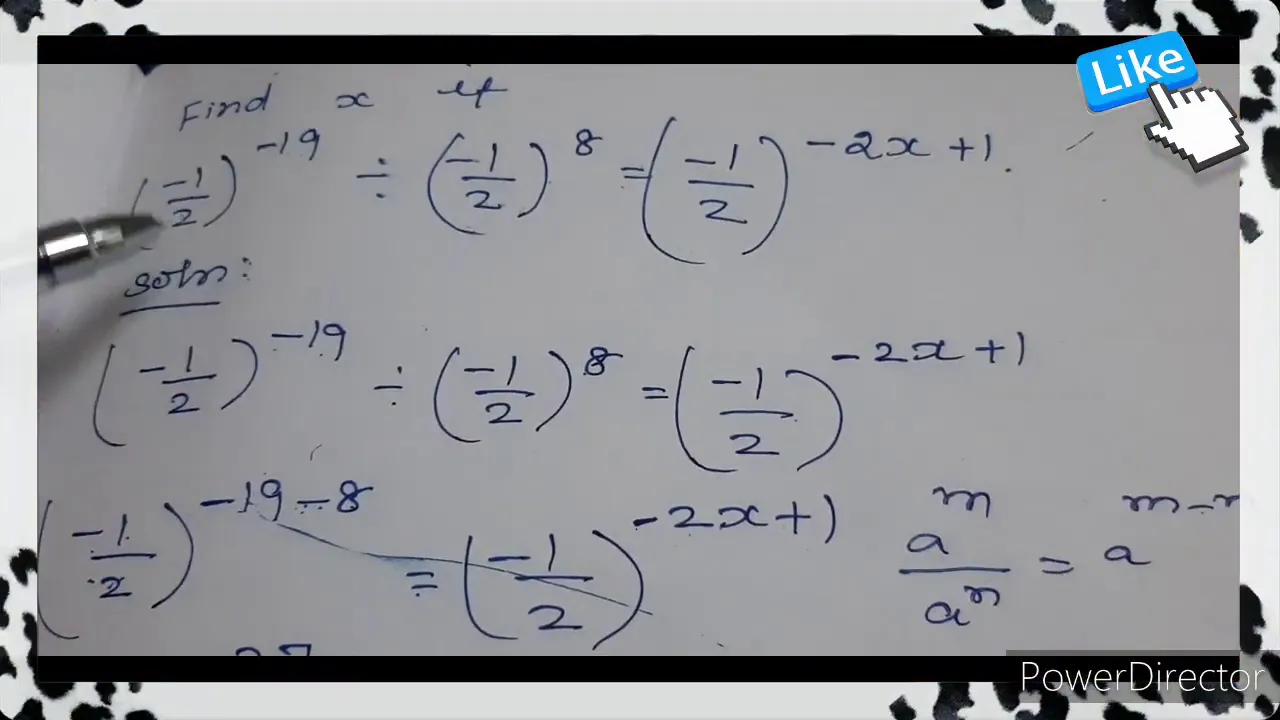 Like
Find x if
(-1/2)^-19 ÷ (-1/2)^8 = (-1/2)^-2x+1.
soln:
(-1/2)^-19 ÷ (-1/2)^8 = (-1/2)^-2x+1
(-1/2)^-19-8 = (-1/2)^-2x+1 a^m/a^n = a^m-n
PowerDirector